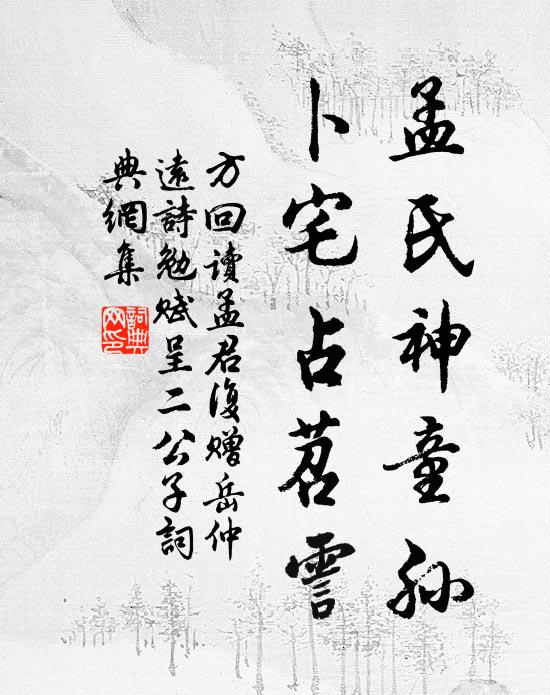 孟氏神童孫
卜宅占苕霅
方回讀孟君復贈岳仲
遠詩勉賦呈二公子詞
典網集
詞典
网印